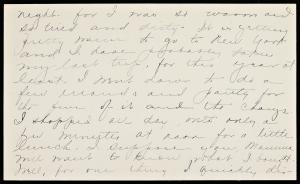 night. for I was so warm and
so tired and dirty. It is getting
pretty warm to go to New York
and I have probably taken
my last trip, for this year at
least. I went down to do a
few errands and partly for
the fun of it and the change.
I shopped all day with only a
few minutes at noon for a little
lunch. I suppose you Mamma
will want to know what I bought
Well, for one thing I quickly